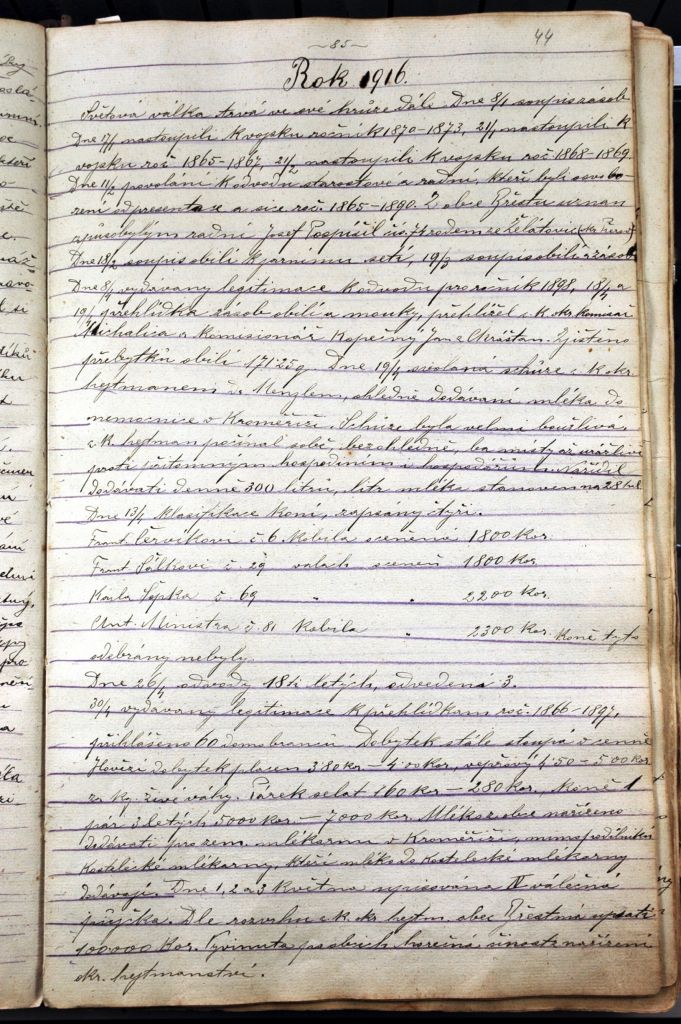 - 85 -
44
Rok 1916.
Světová válka trvá ve své hrůze dáli. Dne 8/1 soupis zásob
Dne 17/1 nastoupili k vojsku ročník 1870-1873, 21/1 nastoupili k
vojsku roč. 1865-1867, 21/2 nastoupili k vojsku roč 1868-1869.
Dne 11/2 povoláni k odvodu starostové a radní, kteří byli osvobo-
zeni od presentace a sice roč. 1865-1890. Z obce Břestu uznan
způsobylým radní Josef Pospíšil rodem ze Želatovic
Dne 18/2 soupis obilí k jarnímu setí, 19/3 soupis obilí a zásob
Dne 8/4 vydávany legitimace k odvodu pro ročník 1898, 18/4 a
19/4 přehlídka zásob obilí a mouky, přehlížel c. k. okr. komisař
Michalica a komisionář Kopečný Jan z Chrášťan. Zjištěno
přebytku obilí 171.25 q. Dne 19/4 svolaná schůze c. k. okr.
hejtmanem dr. Menzlem, ohledně dodávání mléka do
nemocnice v Kroměříži. Schůze byla velmi bouřlivá,
c. k. hejtman počínal sobě bezohledně, ba místy až urážlivě
proti přítomným hospodiním i hospodářům. Nařídil
dodávati denně 300 litrů, litr mléka stanoven na 28 hal.
Dne 13/4 klasifikace koní, zapsány čtyři.
Frant. Červíkovi č 6. kobila sceněna 1800 kor.
Frant č 29 valach sceněn 1800 kor.
Karla č 69 " " 2200 kor.
Ant. Ministra č 81 kobila " 2300 kor. Koně tyto
odebrány nebyly.
Dne 26/4 odvody 18ti letých, odvedeni 3.
30/4 vydávany legitimace k přehlídkam roč. 1866-1897,
přihlášeno 60 domobranců. Dobytek stále stoupá v ceně
Hovězí dobytek placen 3.80 kor - 4.00 kor, vepřový 4.50 - 5.00 kor
za kg. živé váhy. Párek selat 160 kor - 280 kor, koně 1
pár 3 letých 5000 kor - 7000 kor. Mléko z obce nařízeno
dodávati pro zem. mlékarnu v Kroměříži, mimo podílníků
Kostelecké mlékarny, kteří mléko do kostelecké mlékarny
dodávají. Dne 1, 2 a 3 května upisována IV válečná
půjčka. Dle rozvrhu c. k. okr. hejtm. obec Břestná upsati
100000 kor. Vyvinuta činost nařízení
okr. hejtmanství.